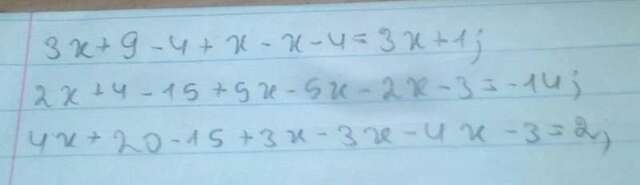 3x+9-4+x-x-4=3x+1;
2x+4-15+5x-5x-2x-3=-14;
4x+20-15+3x-3x-4x-3=2;